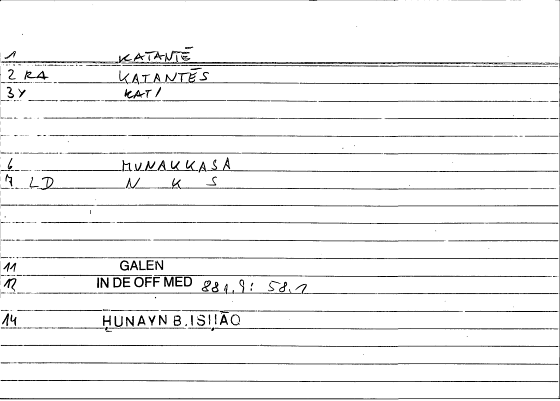 1 KATANTĒ
2 RA KATANTĒS
3 Y KAT/
6 MUNAKKASA
7 LD N K S
11 GALEN
12 IN DE OFF MED 881,9: 58.1
14 ḤUNAYN B. ISḤĀQ